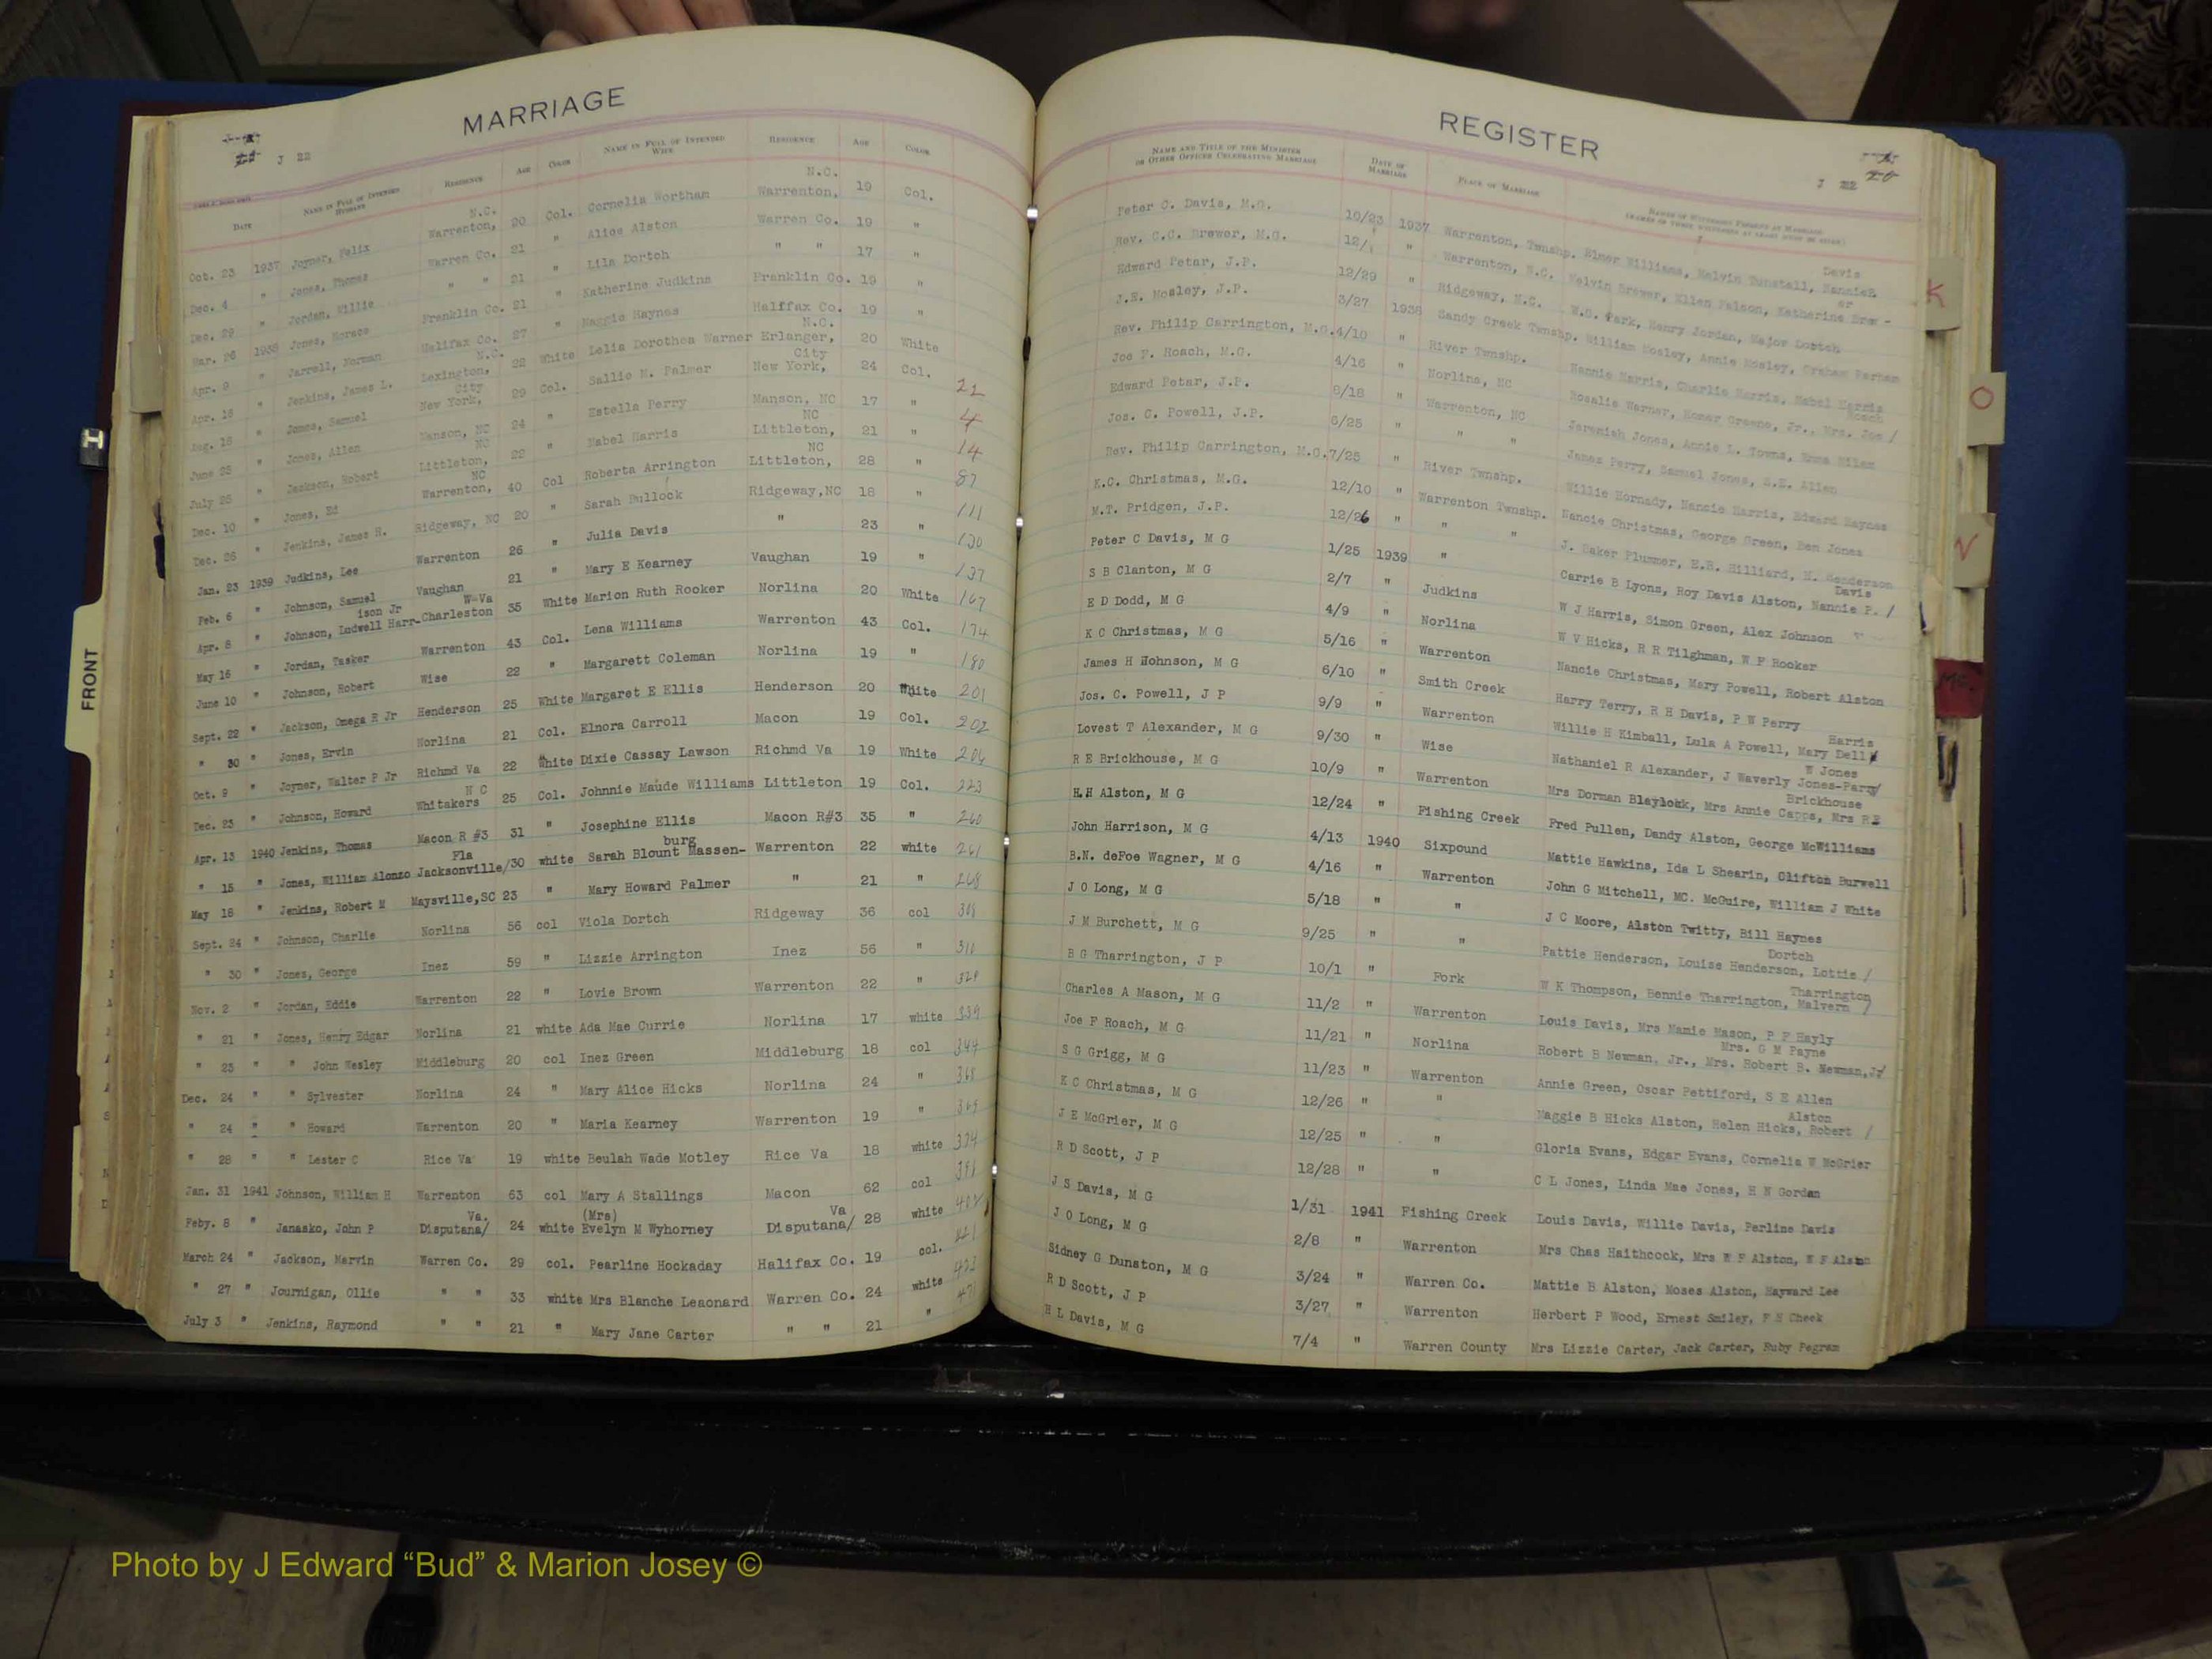 MARRIAGE
J 22
DATE NAME IN FULL OF INTENDED HUSBAND RESIDENCE AGE COLOR NAME IN FULL OF INTENDED WIFE RESIDENCE AGE COLOR
Oct. 23 1937 Joyner, Felix Warrenton, N.C. 20 Col. Cornelia Wortham Warrenton, N.C. 19 Col.
Dec. 4 " Jones, Thomas Warren Co. 21 " Alice Alston Warren Co. 19 "
Dec. 29 " Jordan, Willie " " 21 " Lila Dortch " " 17 "
Mar. 26 1938 Jones, Horace Franklin Co. 21 " Katherine Judkins Franklin Co. 19 "
Apr. 9 " Jarrell, Norman Halifax Co. 27 " Maggie Haynes Halifax Co. 19 "
Apr. 16 " Jenkins, James L. Lexington, N.C. 22 White Lelia Dorothea Warner Erlanger, N.C. 20 White
Aug. 18 " Jones, Samuel New York, City 29 Col. Sallie M. Palmer New York, City 24 Col. 22
June 25 " Jones, Allen Manson, NC 24 " Estella Perry Manson, NC 17 " 4
July 25 " Jackson, Robert Littleton, NC 22 " Mabel Harris Littleton, NC 21 " 14
Dec. 10 " Jones, Ed Warrenton, NC 40 Col Roberta Arrington Littleton, NC 28 " 87
Dec. 26 " Jenkins, James H. Ridgeway, NC 20 " Sarah Bullock Ridgeway,NC 18 " 111
Jan. 23 1939 Judkins, Lee Warrenton 26 " Julia Davis " 23 " 130
Feb. 6 " Johnson, Samuel Vaughan 21 " Mary E Kearney Vaughan 19 " 137
Apr. 8 " Johnson, Ludwell Harr-ison Jr Charleston W-Va 35 White Marion Ruth Rooker Norlina 20 White 167
May 16 " Jordan, Tasker Warrenton 43 Col. Lena Williams Warrenton 43 Col. 174
June 10 " Johnson, Robert Wise 22 " Margarett Coleman Norlina 19 " 180
Sept. 22 " Jackson, Omega R Jr Henderson 25 White Margaret E Ellis Henderson 20 White 201
" 30 " Jones, Ervin Norlina 21 Col. Elnora Carroll Macon 19 Col. 202
Oct. 9 " Joyner, Walter P Jr Richmd Va 22 White Dixie Cassay Lawson Richmd Va 19 White 206
Dec. 23 " Johnson, Howard Whitakers N C 25 Col. Johnnie Maude Williams Littleton 19 Col. 223
Apr. 13 1940 Jenkins, Thomas Macon R #3 31 " Josephine Ellis Macon R#3 35 " 260
" 15 " Jones, William Alonzo Jacksonville/ Fla 30 white Sarah Blount Massen-burg Warrenton 22 white 261
May 18 " Jenkins, Robert M Maysville,SC 23 " Mary Howard Palmer " 21 " 268
Sept. 24 " Johnson, Charlie Norlina 56 col Viola Dortch Ridgeway 36 col
" 30 " Jones, George Inez 59 " Lizzie Arrington Inez 56 "
Nov. 2 " Jordan, Eddie Warrenton 22 " Lovie Brown Warrenton 22 "
" 21 " Jones, Henry Edgar Norlina 21 white Ada Mae Currie Norlina 17 white 339
" 23 " " John Wesley Middleburg 20 col Inez Green Middleburg 18 col 344
Dec. 24 " " Sylvester Norlina 24 " Mary Alice Hicks Norlina 24 " 368
" 24 " " Howard Warrenton 20 " Maria Kearney Warrenton 19 " 369
" 28 " " Lester C Rice Va 19 white Beulah Wade Motley Rice Va 18 white 374
Jan. 31 1941 Johnson, William H Warrenton 63 col Mary A Stallings Macon 62 col
Feby. 8 " Janasko, John P Disputana/ Va. 24 white (Mrs) Evelyn M Wyhorney Disputana/ Va 28 white 402
March 24 " Jackson, Marvin Warren Co. 29 col. Pearline Hockaday Halifax Co. 19 col.
" 27 " Journigan, Ollie " " 33 white Mrs Blanche Leaonard Warren Co. 24 white
July 3 " Jenkins, Raymond " " 21 " Mary Jane Carter " " 21 "
REGISTER
J 22
NAME AND TITLE OF THE MINISTER OR OTHER OFFICER CELEBRATING MARRIAGE DATE OF MARRIAGE PLACE OF MARRIAGE NAMES OF WITNESSES PRESENT AT MARRIAGE
Peter C. Davis, M.G. 10/23 1937 Warrenton, Twnshp. Elmer Williams, Melvin Tunstall, NannieP. Davis
Rev. C.C. Brewer, M.G. 12/ " Warrenton, N.C. Melvin Brewer, Ellen Falcon, Katherine Brew-er
Edward Petar, J.P. 12/29 " Ridgeway, N.C. W.D. Park, Henry Jordan, Major Dortch
J.E. Mosley, J.P. 3/27 1938 Sandy Creek Twnshp. William Mosley, Annie Mosley, Graham Parham
Rev. Philip Carrington, M.G. 4/10 " River Twnshp. Nannie Harris, Charlie Harris, Mabel Harris
Joe F. Roach, M.G. 4/16 " Norlina, NC Rosalie Warner, Homer Greene, Jr., Mrs. Joe / Roach
Edward Petar, J.P. 8/18 " Warrenton, NC Jeremiah Jones, Annie L. Towns, Emma Milam
Jos. C. Powell, J.P. 6/25 " " " James Perry, Samuel Jones, S.E. Allen
Rev. Philip Carrington, M.G. 7/25 " River Twnshp. Willie Hornady, Nannie Harris, Edward Haynes
K.C. Christmas, M.G. 12/10 " Warrenton Twnshp. Nancie Christmas, George Green, Ben Jones
M.T. Pridgen, J.P. 12/26 " " " J. Baker Plummer, E.R. Hilliard, M. Henderson
Peter C Davis, M G 1/25 1939 " Carrie B Lyons, Roy Davis Alston, Nannie P. / Davis
S B Clanton, M G 2/7 " Judkins W J Harris, Simon Green, Alex Johnson
E D Dodd, M G 4/9 " Norlina W V Hicks, R R Tilghman, W F Rooker
K C Christmas, M G 5/16 " Warrenton Nancie Christmas, Mary Powell, Robert Alston
James H Hohnson, M G 6/10 " Smith Creek Harry Terry, R H Davis, P W Perry
Jos. C. Powell, J P 9/9 " Warrenton Willie H Kimball, Lula A Powell, Mary Dell/ Harris
Lovest T Alexander, M G 9/30 " Wise Nathaniel R Alexander, J Waverly Jones-Parry/ W Jones
R E Brickhouse, M G 10/9 " Warrenton Mrs Dorman Blaylock, Mrs Annie Capps, Mrs R E Brickhouse
H.H Alston, M G 12/24 " Fishing Creek Fred Pullen, Dandy Alston, George McWilliams
John Harrison, M G 4/13 1940 Sixpound Mattie Hawkins, Ida L Shearin, Clifton Burwell
B.N. deFoe Wagner, M G 4/16 " Warrenton John G Mitchell, MC. McGuire, William J White
J O Long, M G 5/18 " " J C Moore, Alston Twitty, Bill Haynes
J M Burchett, M G 9/25 " " Pattie Henderson, Louise Henderson, Lottie / Dortch
B G Tharrington, J P 10/1 " Fork W K Thompson, Bennie Tharrington, Malvern / Tharrington
Charles A Mason, M G 11/2 " Warrenton Louis Davis, Mrs Mamie Mason, P F Hayly
Joe F Roach, M G 11/21 " Norlina Robert B Newman, Jr., Mrs. Robert B. Newman,Jr/ Mrs. G M Payne
S G Grigg, M G 11/23 " Warrenton Annie Green, Oscar Pettiford, S E Allen
K C Christmas, M G 12/26 " " Maggie B Hicks Alston, Helen Hicks, Robert / Alston
J E McGrier, M G 12/25 " " Gloria Evans, Edgar Evans, Cornelia W McGrier
R D Scott, J P 12/28 " " C L Jones, Linda Mae Jones, H N Gordan
J S Davis, M G 1/31 1941 Fishing Creek Louis Davis, Willie Davis, Perline Davis
J O Long, M G 2/8 " Warrenton Mrs Chas Haithcock, Mrs W F Alston, W F Alston
Sidney G Dunston, M G 3/24 " Warren Co. Mattie B Alston, Moses Alston, Hayward Lee
R D Scott, J P 3/27 " Warrenton Herbert P Wood, Ernest Smiley, F N Cheek
H L Davis, M G 7/4 " Warren County Mrs Lizzie Carter, Jack Carter, Ruby Pegram
FRONT
K
O
V
Mc
Photo by J Edward “Bud” & Marion Josey ©